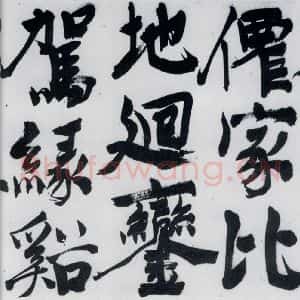 僊家比
地迴鑾
駕緣谿
shufawang.cn